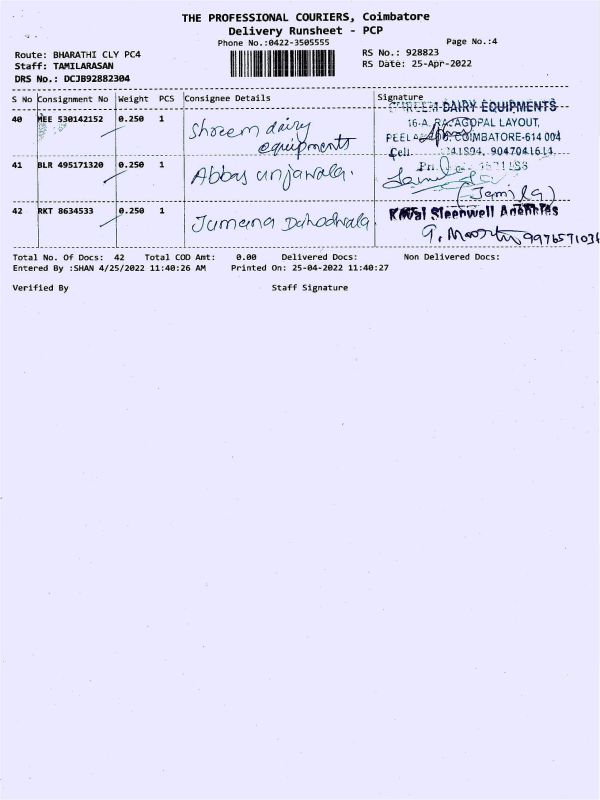 THE PROFESSIONAL COURIERS, Coimbatore
Delivery Runsheet - PCP
Phone No.:0422-3505555
Page No.:4
Route: BHARATHI CLY PC4
RS No.: 928823
Staff: TAMILARASAN
RS Date: 25-Apr-2022
DRS No.: DCJB92882304
S No Consignment No Weight PCS Consignee Details Signature
40 MEE 530142152 0.250 1 Shreem dairy equipments
DAIRY EQUIPMENTS
LAYOUT,
COIMBATORE-614 004
Cell
41 BLR 495171320 0.250 1 Abbas unjawala.
(Jamila)
42 RKT 8634533 0.250 1 Jumana Dahodwala.
Sleepwell
9976571036
Total No. Of Docs: 42 Total COD Amt: 0.00 Delivered Docs: Non Delivered Docs:
Entered By :SHAN 4/25/2022 11:40:26 AM Printed On: 25-04-2022 11:40:27
Verified By Staff Signature